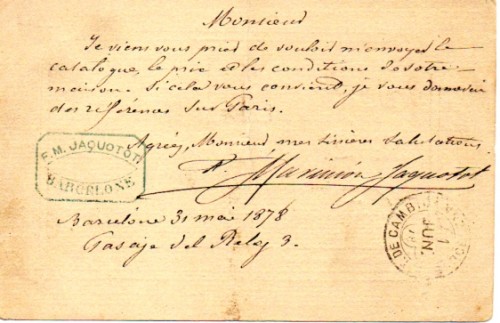 Monsieur
Je viens vous prier de vouloir m'envoyer le
catalogue, le prix et les conditions de votre
maison. Si cela vous convient, je vous donnerai
des références sur Paris.
Agréez, Monsieur mes sincères salutations.
F. M. JAQUOTOT
BARCELONE
F. Maximin Jaquotot
Barcelone 31 mai 1878
Pasaje del Reloj 3.
DE CAMB
1
JUN.